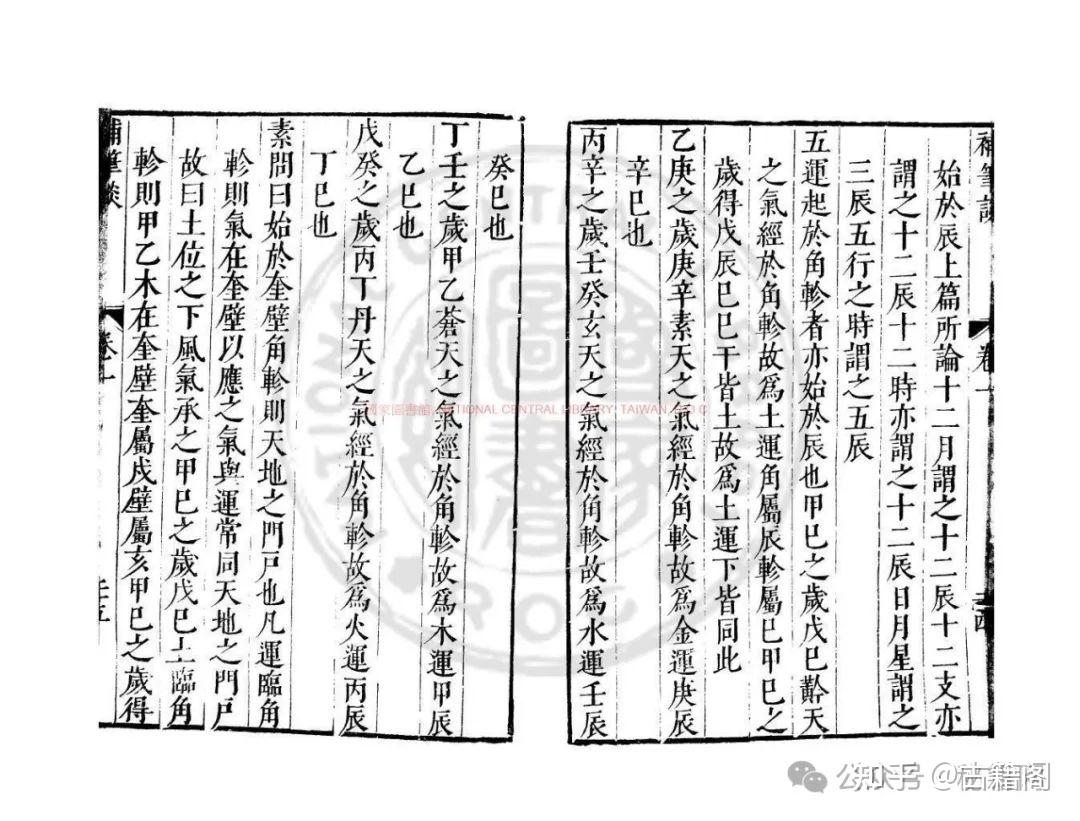 補筆談
卷一
始於辰上篇所論十二月謂之十二辰十二支亦
謂之十二辰十二時亦謂之十二辰日月星謂之
三辰五行之時謂之五辰
五運起於角軫者亦始於辰也甲巳之歲戊巳黅天
之氣經於角軫故爲土運角屬辰軫屬巳甲巳之
歲得戊辰巳巳干皆土故爲土運下皆同此
乙庚之歲庚辛素天之氣經於角軫故爲金運庚辰
辛巳也
丙辛之歲壬癸玄天之氣經於角軫故爲水運壬辰
癸巳也
丁壬之歲甲乙蒼天之氣經於角軫故爲木運甲辰
乙巳也
戊癸之歲丙丁丹天之氣經於角軫故爲火運丙辰
丁巳也
素問曰始於奎壁角軫則天地之門戶也凡運臨角
軫則氣在奎壁以應之氣與運常同天地之門戶
故曰土位之下風氣承之甲巳之歲戊巳土臨角
軫則甲乙木在奎壁奎屬戌壁屬亥甲巳之歲得
補筆談
卷一
國家圖書館 NATIONAL CENTRAL LIBRARY, TAIWAN
知乎 @古籍阁